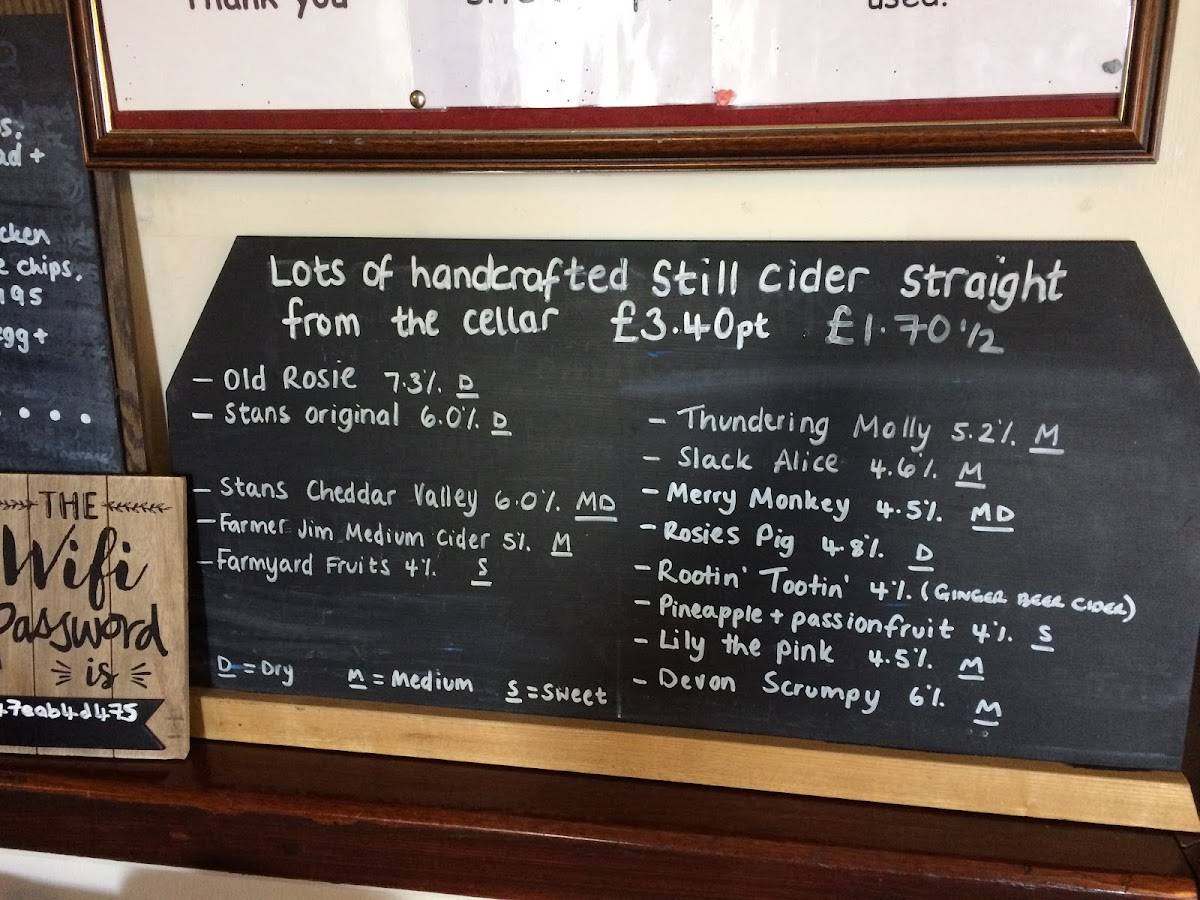 Thank you
used.
ad +
cken
e chips.
egg +
THE
Wifi
Password
is
Lots of handcrafted Still Cider straight
from the cellar £3.40pt £1.70 1/2
- Old Rosie 7.3% D
- Stans original 6.0% D
- Stans Cheddar Valley 6.0% MD
- Farmer Jim Medium Cider 5% M
- Farmyard Fruits 4% S
D = Dry M = Medium S = Sweet
- Thundering Molly 5.2% M
- Slack Alice 4.6% M
- Merry Monkey 4.5% MD
- Rosies Pig 4.8% D
- Rootin' Tootin' 4% (GINGER BEER CIDER)
- Pineapple + passionfruit 4% S
- Lily the pink 4.5% M
- Devon Scrumpy 6% M